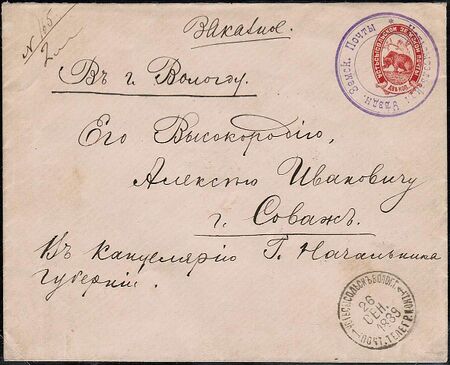 N 165
2 лот
Заказное.
Въ г. Вологду.
Его Высокородію,
Алексѣю Ивановичу
г. Соважъ.
Въ канцелярію Г. Начальника
губерніи.
Уѣздн. Земск. Почты
УСТЬСЫСОЛЬСКЪ ВОЛОГ.
26
СЕН.
1889
ПОЧТ. ТЕЛЕГР. КОНТ.